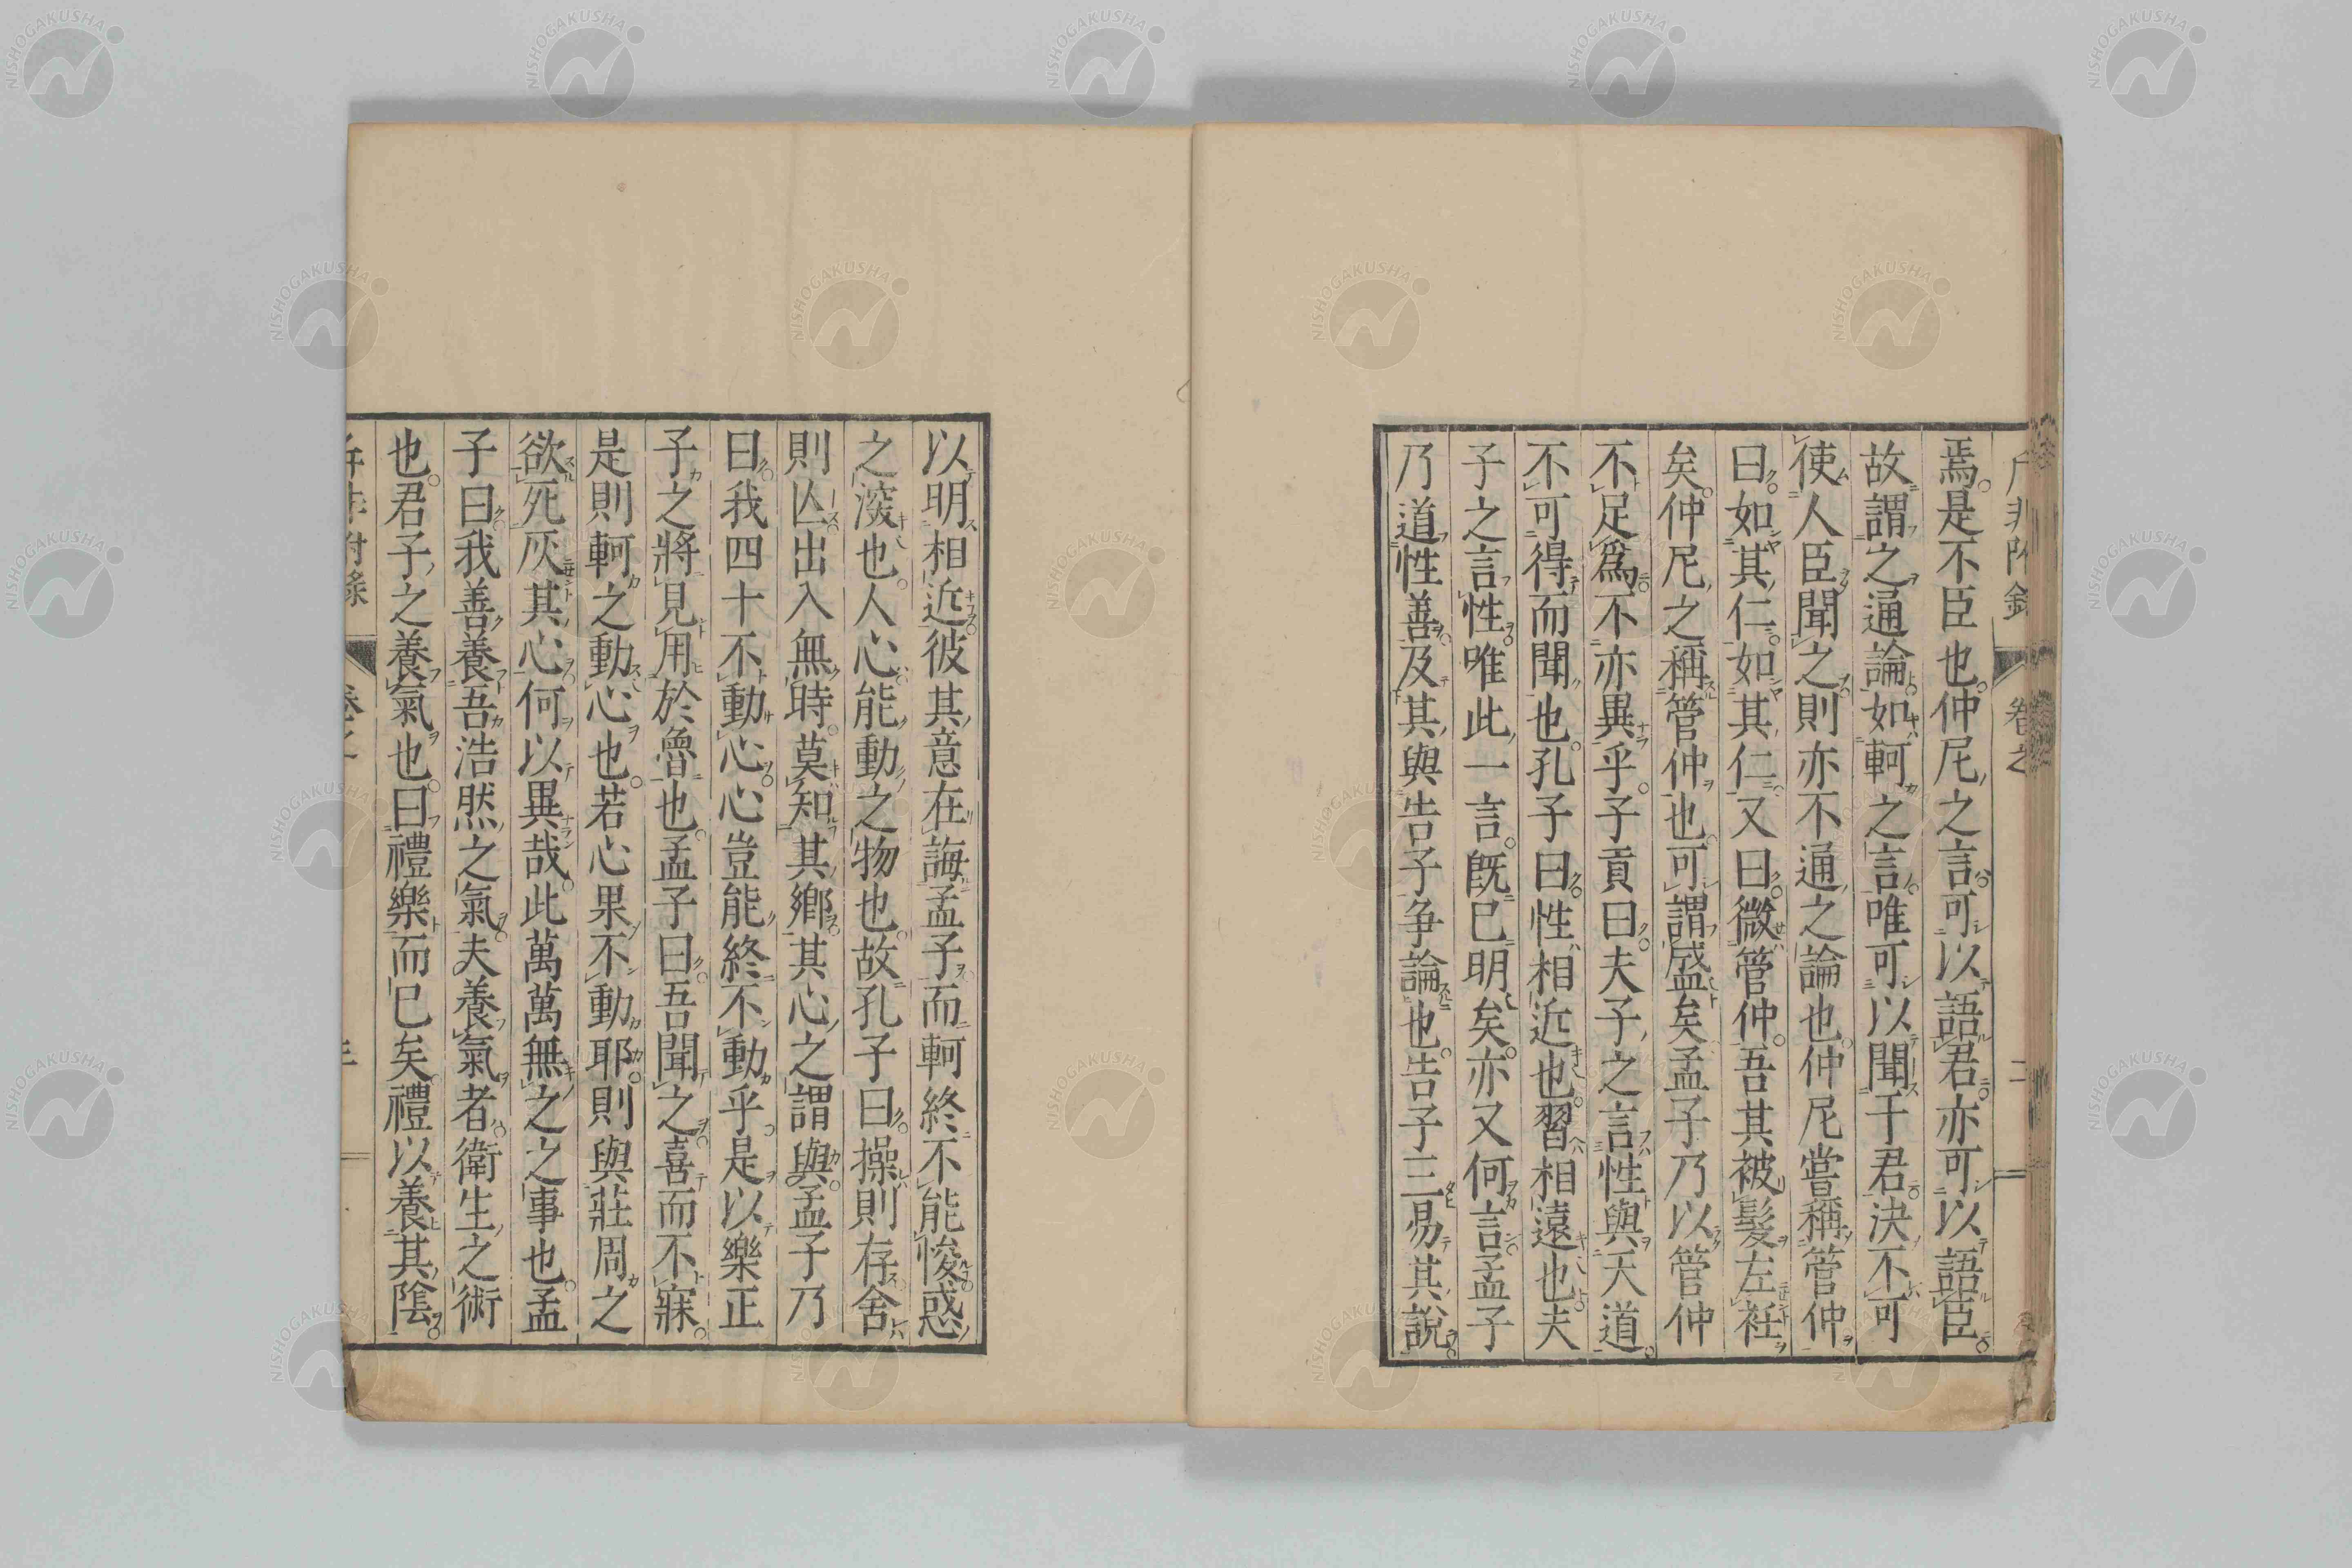 焉是不臣也仲尼之言可以語君亦可以語臣
故謂之通論如軻之言唯可以聞于君決不可
使人臣聞之則亦不通之論也仲尼嘗稱管仲
曰如其仁如其仁又曰微管仲吾其被髮左衽
矣仲尼之稱管仲也可謂盛矣孟子乃以管仲
不足爲不亦異乎子貢曰夫子之言性與天道
不可得而聞也孔子曰性相近也習相遠也夫
子之言性唯此一言既已明矣亦又何言孟子
乃道性善及其與告子争論也告子三易其說
以明相近彼其意在誨孟子而軻終不能悛惑
之深也人心能動之物也故孔子曰操則存舍
則亾出入無時莫知其鄉其心之謂與孟子乃
曰我四十不動心心豈能終不動乎是以樂正
子之將見用於魯也孟子曰吾聞之喜而不寐
是則軻之動心也若心果不動耶則與莊周之
欲死灰其心何以異哉此萬萬無之之事也孟
子曰我善養吾浩然之氣夫養氣者衛生之術
也君子之養氣也曰禮樂而已矣禮以養其陰
NISHOGAKUSHA